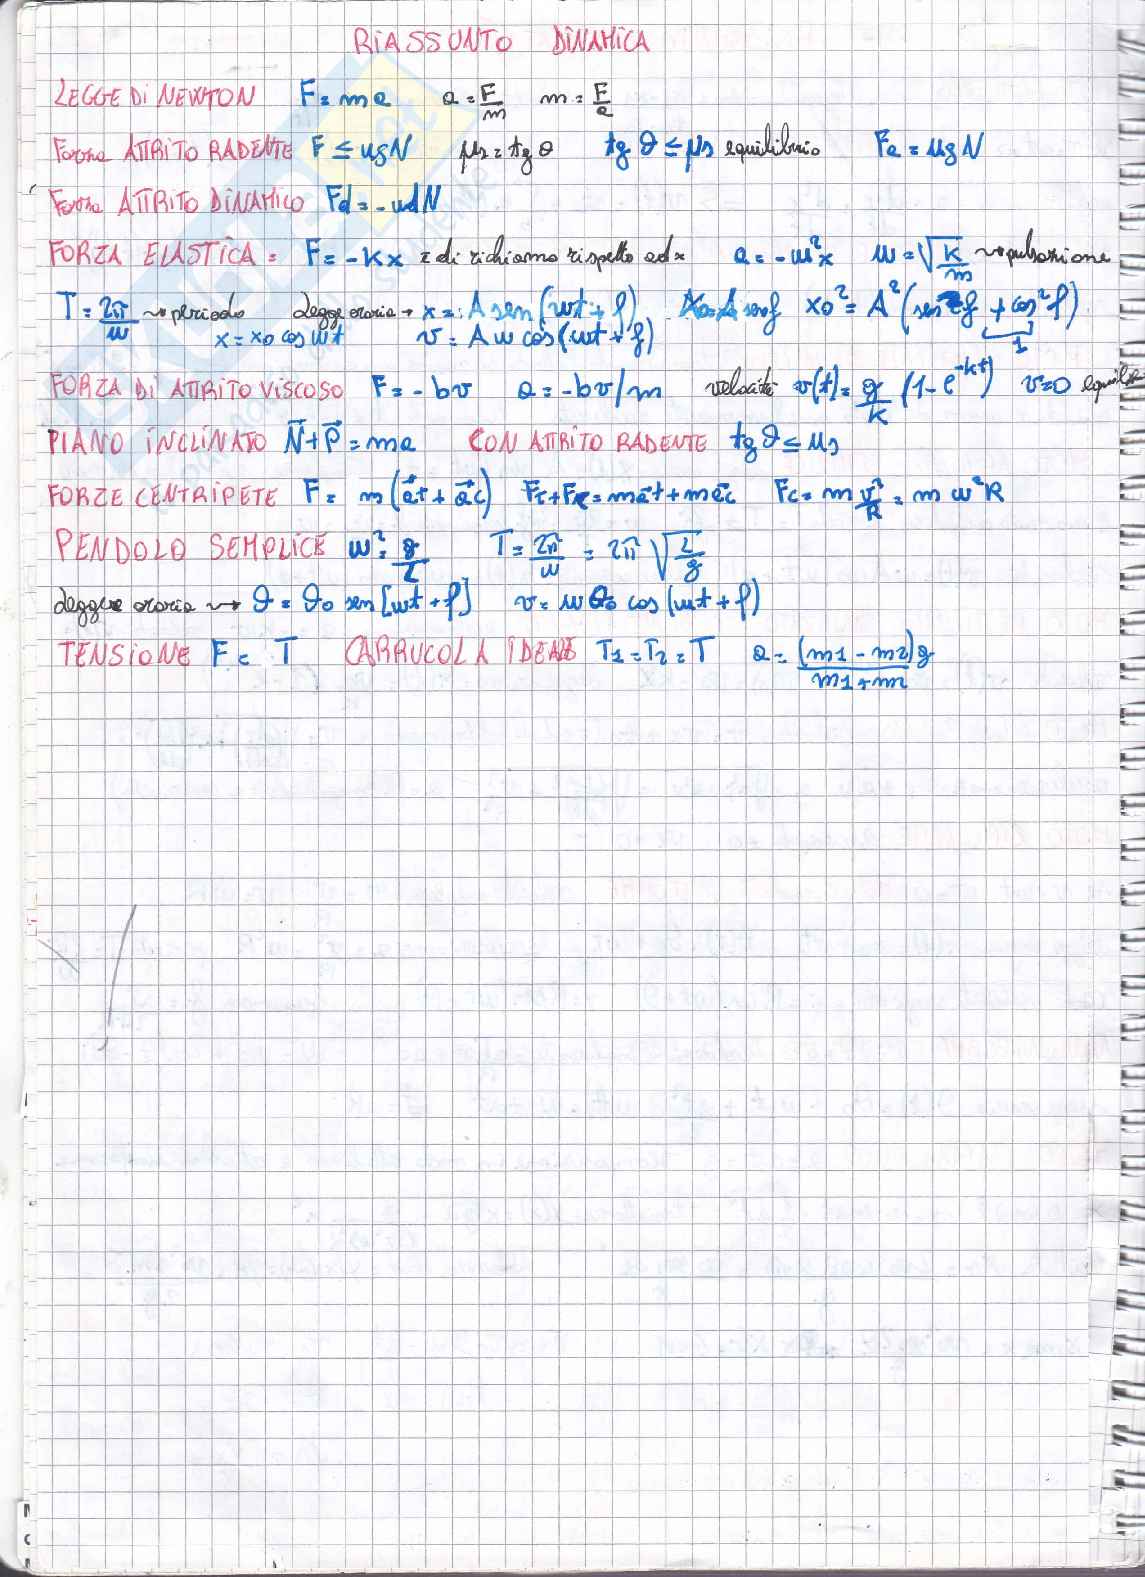 RIASSUNTO DINAMICA
LEGGE Di NEWTON F = ma a = F/m m = F/a
Forza ATTRITO RADENTE F ≤ usN μs = tg θ tg θ ≤ μs equilibrio Fa = usN
Forza ATTRITO DINAMICO Fd = -udN
FORZA ELASTICA = F = -Kx è di richiamo rispetto ad x a = -ω²x ω = √K/m → pulsazione
T = 2π/ω → periodo Legge oraria → x = A sen(ωt + φ) X0 = A senφ x0² = A²(sen²φ + cos²φ)
x = x0 cos ωt v = Aω cos(ωt + φ) 1
FORZA Di ATTRITO VISCOSO F = -bv a = -bv/m velocità v(t) = g/K (1 - e^-kt) v=0
PIANO INCLINATO N⃗ + P⃗ = ma CON ATTRITO RADENTE tg θ ≤ μs
FORZE CENTRIPETE F = m(a⃗t + a⃗c) Ft + Fc = ma⃗t + ma⃗c Fc = m v²/R = m ω²R
PENDOLO SEMPLICE ω² = g/L T = 2π/ω = 2π √L/g
Legge oraria → θ = θ0 sen[ωt + φ] v = ωθ0 cos(ωt + φ)
TENSIONE F = T CARRUCOLA IDEALE T1 = T2 = T a = (m1 - m2)g/m1+m2